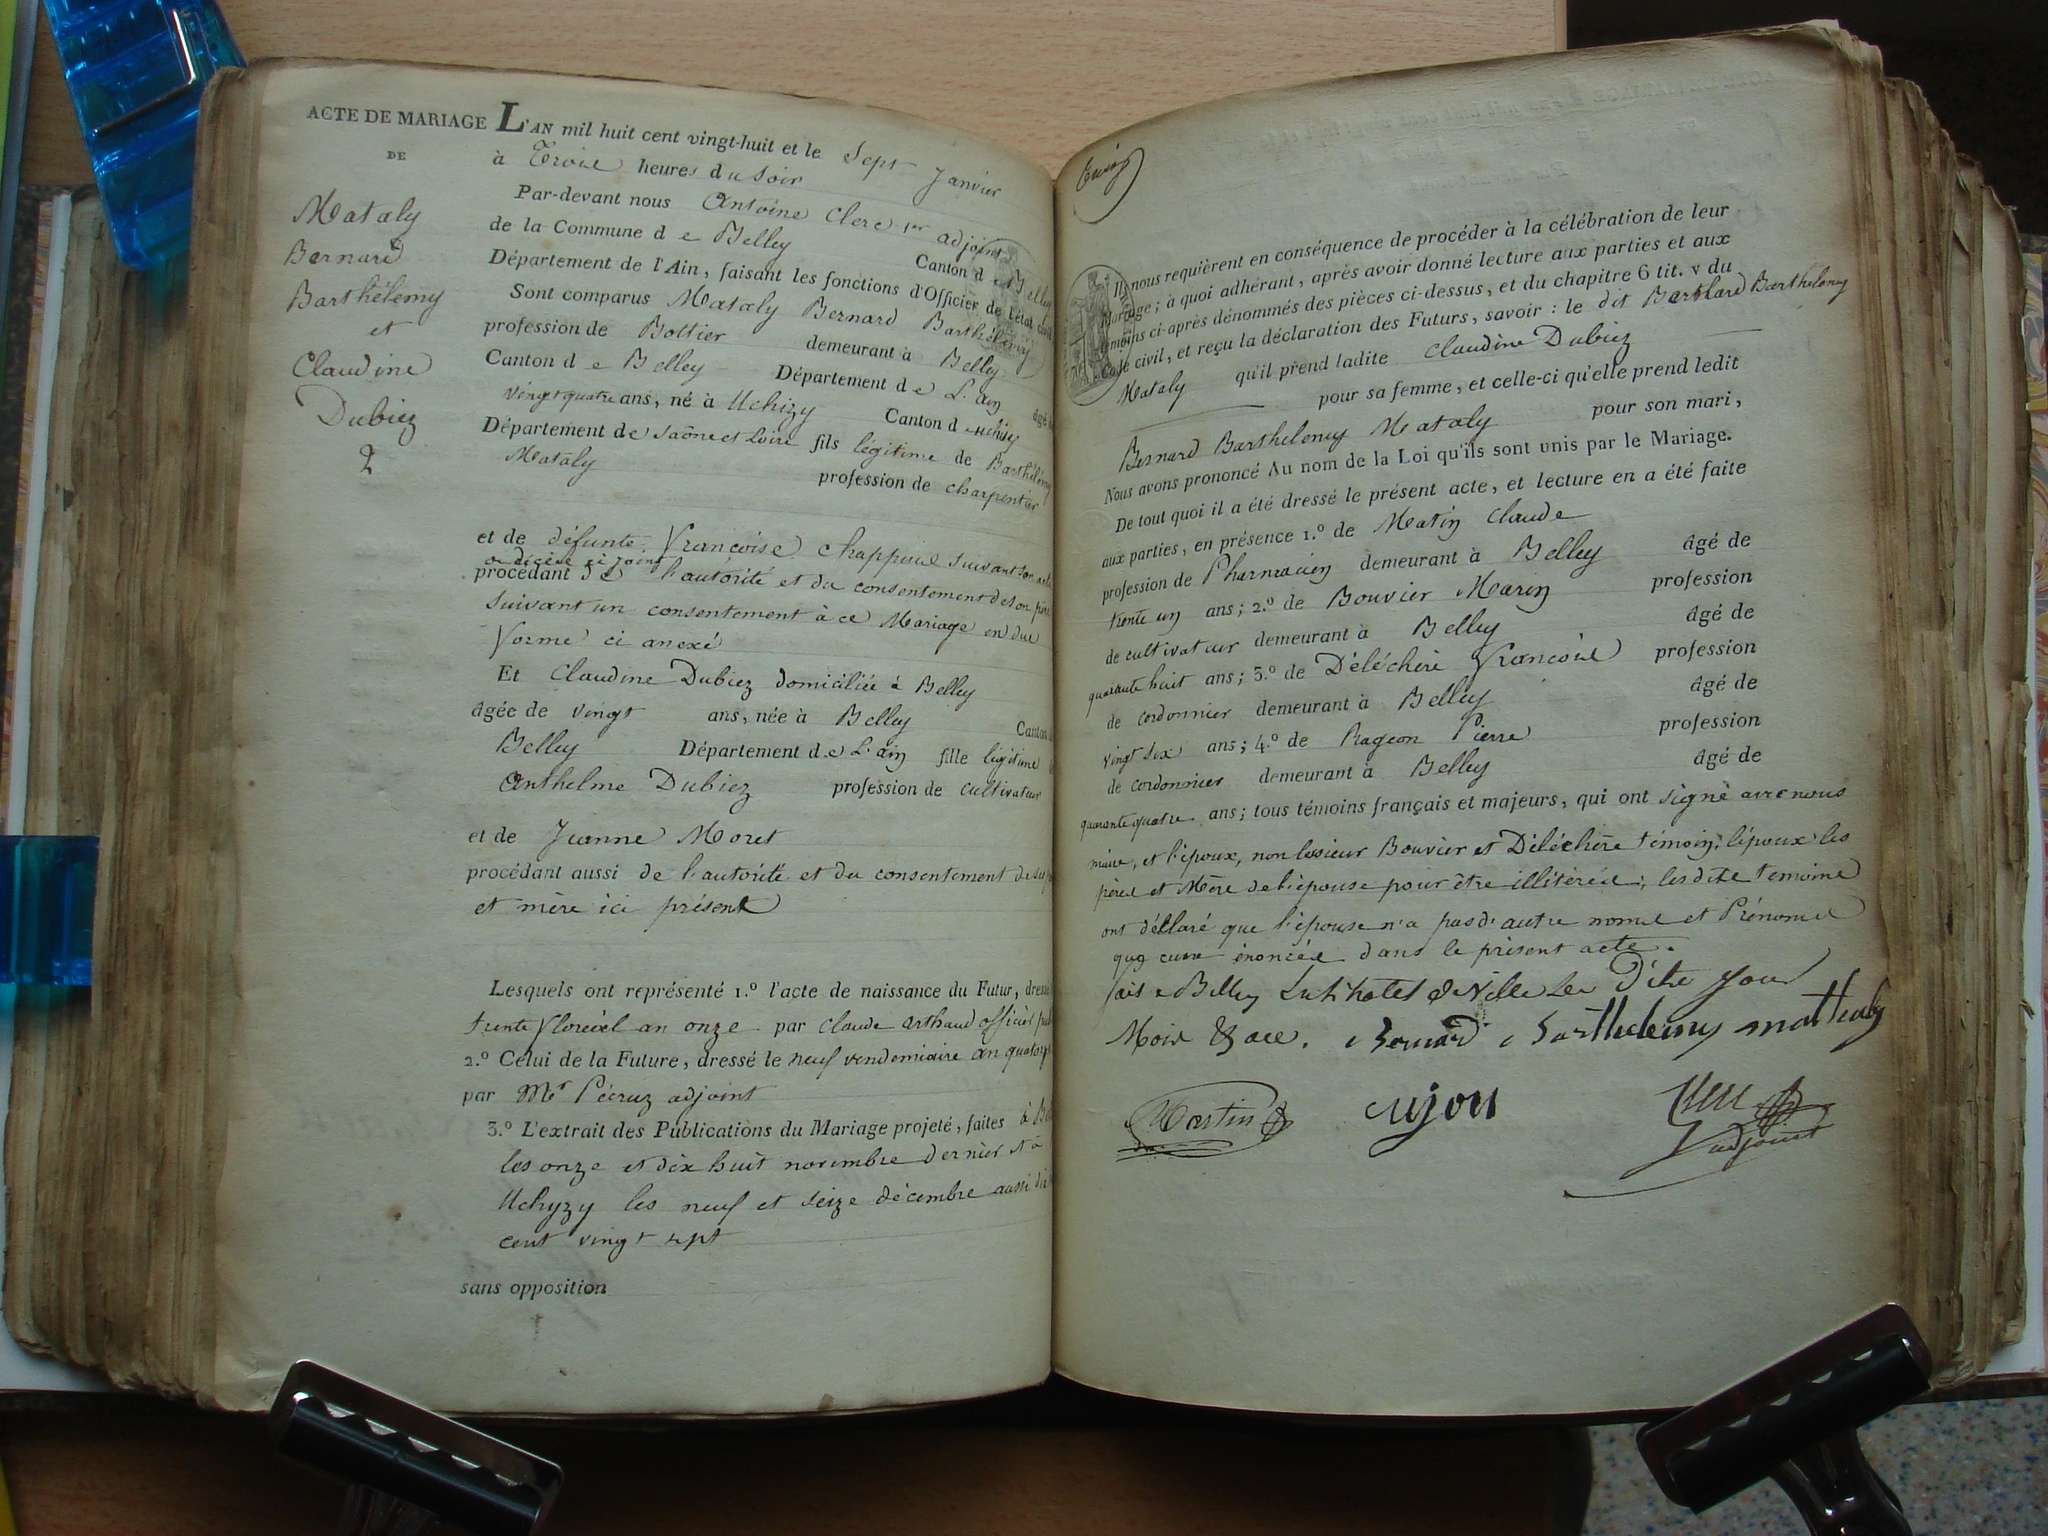 ACTE DE MARIAGE
DE
Mataly
Bernard
Barthélemy
et
Claudine
Dubiez
2
L'AN mil huit cent vingt-huit et le Sept Janvier
à Trois heures du Soir
Par-devant nous Antoine Clerc 1er adjoint
de la Commune de Belley Canton de Belley
Département de l'Ain, faisant les fonctions d'Officier de l'état civil
Sont comparus Mataly Bernard Barthélemy
profession de Bottier demeurant à Belley
Canton de Belley Département de L'ain âgé de
vingt quatre ans, né à Uchizy Canton d uchizy
Département de Saône et Loire fils légitime de Barthélemy
Mataly profession de charpentier
et de défunte françoise chappuis suivant son acte
de décès ci joint
procédant de l'autorité et du consentement de son père
suivant un consentement à ce Mariage en due
forme ci anexé
Et Claudine Dubiez domiciliée à Belley
âgée de vingt ans, née à Belley Canton
Belley Département de L'ain fille légitime
Anthelme Dubiez profession de cultivateur
et de Jeanne Moret
procédant aussi de l'autorité et du consentement de ses
et mère ici présent
Lesquels ont représenté 1.º l'acte de naissance du Futur, dressé
trente floréal an onze par claude arthaud officier
2.º Celui de la Future, dressé le neuf vendemiaire an quatorze
par Mr Pécruz adjoint
3.º L'extrait des Publications du Mariage projeté, faites à
les onze et dix huit novembre dernier et à
Uchyzy les neuf et seize décembre aussi
cent vingt sept
sans opposition
Ils nous requièrent en conséquence de procéder à la célébration de leur
Mariage; à quoi adhérant, après avoir donné lecture aux parties et aux
témoins ci-après dénommés des pièces ci-dessus, et du chapitre 6 tit. v du
Code civil, et reçu la déclaration des Futurs, savoir: le dit Barthélemy
Mataly qu'il prend ladite Claudine Dubiez
pour sa femme, et celle-ci qu'elle prend ledit
Bernard Barthelemy Mataly pour son mari,
Nous avons prononcé Au nom de la Loi qu'ils sont unis par le Mariage.
De tout quoi il a été dressé le présent acte, et lecture en a été faite
aux parties, en présence 1.º de Matin Claude
profession de Pharmacien demeurant à Belley âgé de
trente un ans; 2.º de Bouvier Marin profession
de cultivateur demeurant à Belley âgé de
quarante huit ans; 3.º de Déléchère françois profession
de cordonnier demeurant à Belley âgé de
vingt six ans; 4.º de Rageon Pierre profession
de cordonnier demeurant à Belley âgé de
quarante quatre ans; tous témoins français et majeurs, qui ont signé avec nous
maire, et l'époux, non les sieur Bouvier et Déléchère témoins, l'époux les
père et Mère de l'épouse pour être illitérés; les dits temoins
ont déclaré que l'épouse n'a pas d'autre noms et Prénoms
que ceux énoncés dans le présent acte.
fait à Belley hotel de ville les Dits jour
Mois & an. Bernard Barthelemy mattaly
Martin
adjoint